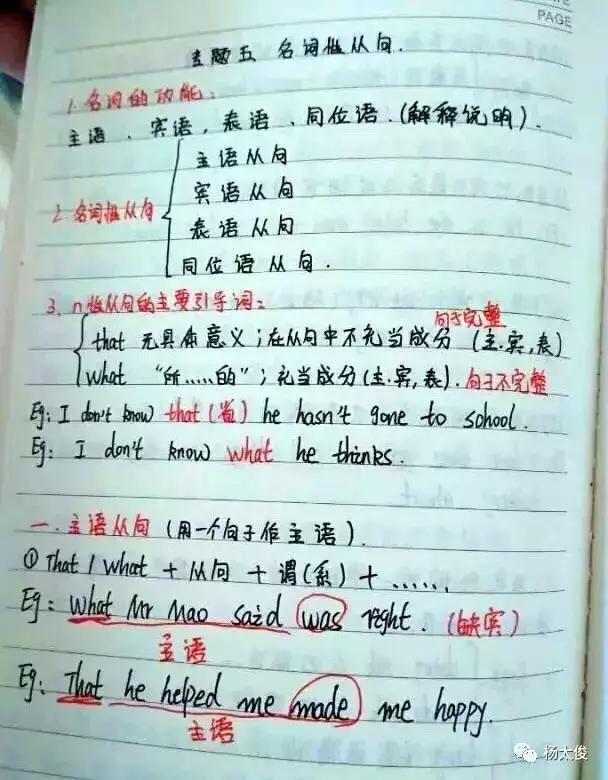 PAGE
专题五 名词性从句.
1. 名词的功能:
主语、宾语,表语、同位语.(解释说明).
主语从句
宾语从句
2. 名词性从句
表语从句
同位语从句.
3. n性从句的主要引导词:
句子完整
that 无具体意义;在从句中不充当成分 (主.宾,表)
what "所……的";充当成分(主.宾,表). 句子不完整
Eg: I don't know that (省) he hasn't gone to school.
Eg: I don't know what he thinks.
一. 主语从句 (用一个句子作主语).
① That / what + 从句 + 谓(系) + ......
Eg: What Mr Mao said was right. (缺宾)
主语
Eg: That he helped me made me happy.
主语
杨太俊